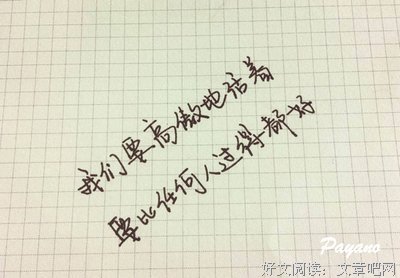 我们要高傲地活着
要比任何人过得都好
Payano
好文阅读：文章吧网